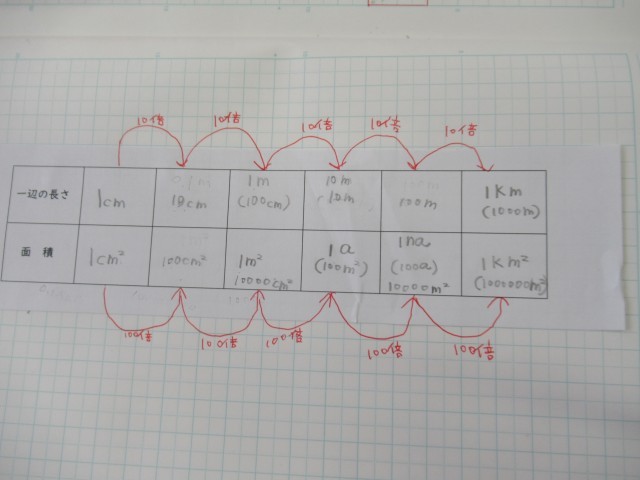 10倍 10倍 10倍 10倍 10倍
一辺の長さ
1cm
10cm
1m
(100cm)
10m
10m
100m
1km
(1000m)
面積
1cm²
100cm²
1m²
10000cm²
1a
(100m²)
1ha
(100a)
10000m²
1km²
(1000000m²)
100倍 100倍 100倍 100倍 100倍